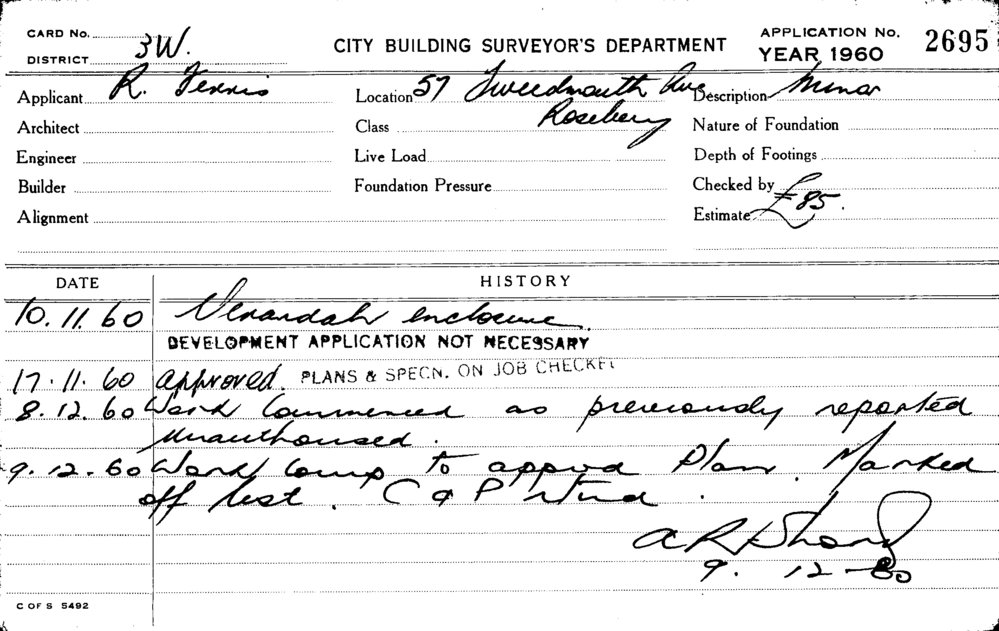 CARD No.
DISTRICT 3W.
CITY BUILDING SURVEYOR'S DEPARTMENT
APPLICATION No. 2695
YEAR 1960
Applicant R. Ferris
Location 57 Tweedmouth Ave
Roseberry
Description Minor
Architect
Class
Nature of Foundation
Engineer
Live Load
Depth of Footings
Builder
Foundation Pressure
Checked by
Alignment
Estimate £85.
DATE HISTORY
10.11.60 Verandah enclosure.
DEVELOPMENT APPLICATION NOT NECESSARY
17.11.60 Approved. PLANS & SPECN. ON JOB CHECKE
8.12.60 Work Commenced as previously reported
Unauthorised.
9.12.60 Work Comp to approvd Plan. Marked
off list. C & P
9.12-60
C OF S 5492